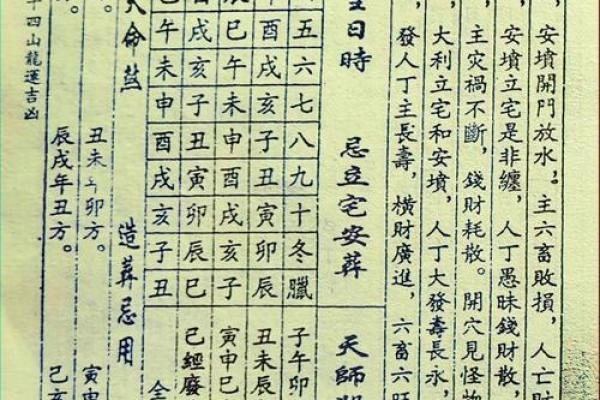 ，安墳開門放水。主六畜敗損，人亡財
，安墳立宅是非纏，人丁愚昧錢財散，
，主災禍不斷，錢財耗散。開穴見怪
，大利立宅和安墳，人丁大發壽長永，
，發人丁主長壽，橫財廣進，六畜六旺
日時　忌立宅安葬　天師
五六七八九十冬臘
酉戌亥子丑寅卯辰
巳午未申酉戌亥子
戌亥子丑寅卯辰巳
午未申酉戌亥子丑
子午卯
丑未辰
寅申巳
已經廢
全
命煞　造葬忌用
丑未年卯方。　寅申
辰戌年丑方。　巳亥
十四山龍運吉凶